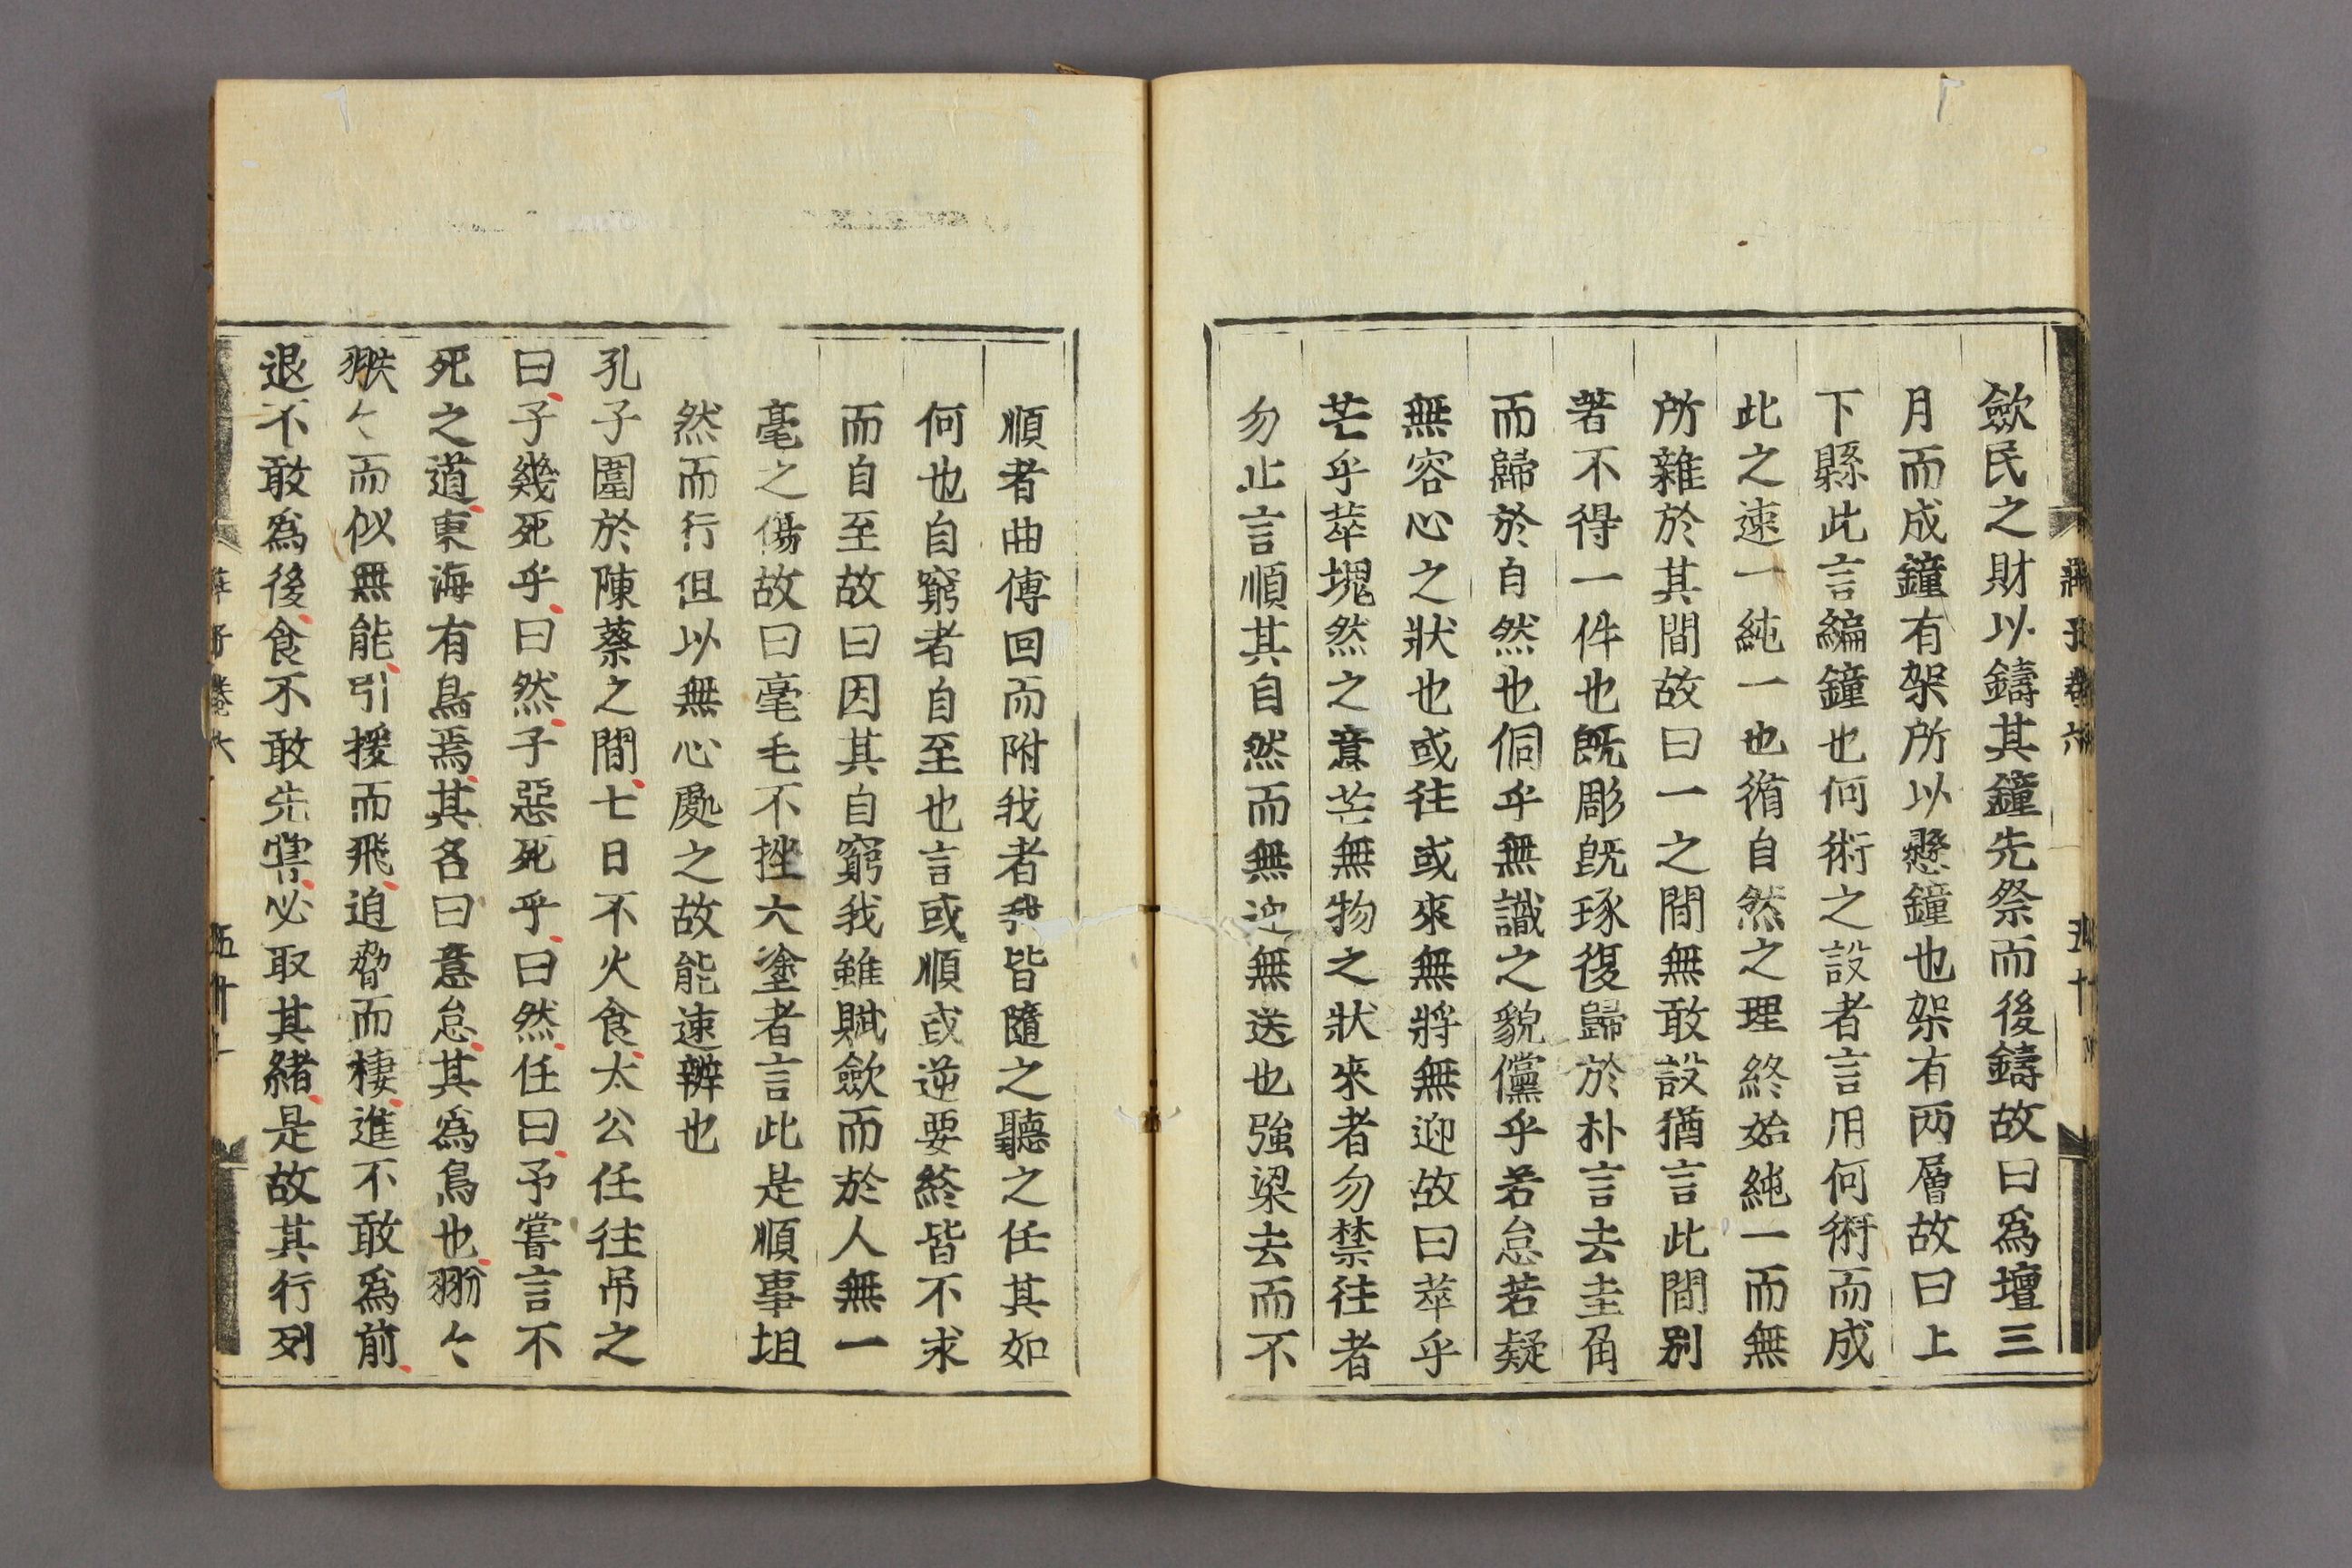 莊子卷六
歛民之財以鑄其鐘先祭而後鑄故曰爲壇三
月而成鐘有架所以懸鐘也架有两層故曰上
下縣此言編鐘也何術之設者言用何術而成
此之速一純一也循自然之理終始純一而無
所雜於其間故曰一之間無敢設猶言此間别
著不得一件也既彫既琢復歸於朴言去圭角
而歸於自然也侗乎無識之貌儻乎若怠若疑
無容心之狀也或往或來無將無迎故曰萃乎
芒乎萃塊然之意芒無物之狀來者勿禁往者
勿止言順其自然而無迎無送也強梁去而不
順者曲傅回而附我者我皆隨之聽之任其如
何也自窮者自至也言或順或逆要終皆不求
而自至故曰因其自窮我雖賦歛而於人無一
毫之傷故曰毫毛不挫大塗者言此是順事坦
然而行但以無心處之故能速辦也
孔子圍於陳蔡之間七日不火食太公任往吊之
曰子幾死乎曰然子惡死乎曰然任曰予嘗言不
死之道東海有鳥焉其名曰意怠其為鳥也翂々
翐々而似無能引援而飛迫脅而棲進不敢爲前
退不敢爲後食不敢先嘗必取其緒是故其行列
莊子卷六